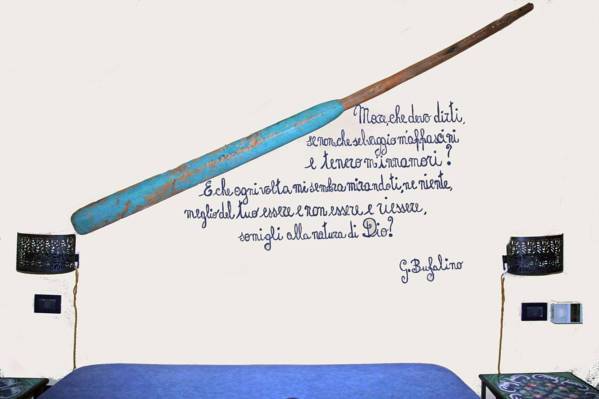 Mare, che devo dirti,
se non che selvaggio m'affascini
e tenero m'innamori?
E che ogni volta mi sembra mirandoti, ne niente,
meglio del tuo essere e non essere e riessere,
somigli alla natura di Dio?
G. Bufalino